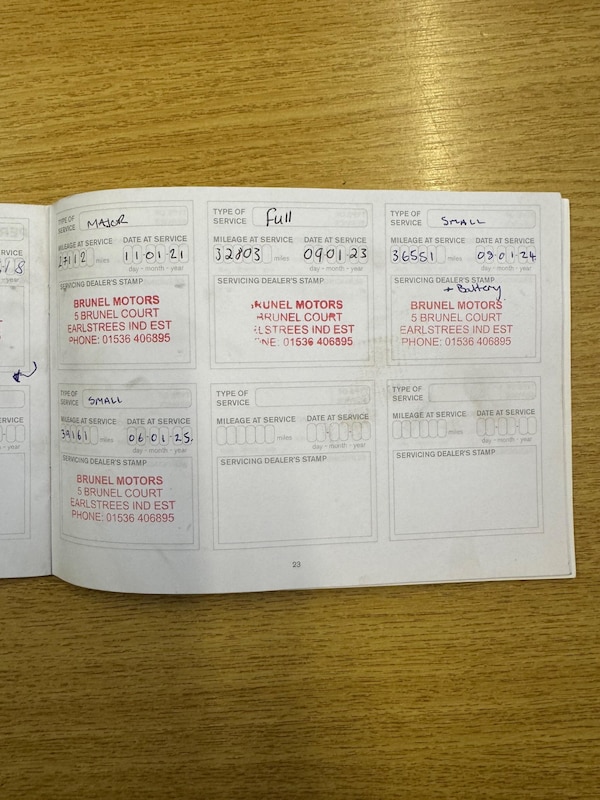 TYPE OF SERVICE MAJOR
MILEAGE AT SERVICE DATE AT SERVICE
27112 miles 11-01-21
day - month - year
SERVICING DEALER'S STAMP
BRUNEL MOTORS
5 BRUNEL COURT
EARLSTREES IND EST
PHONE: 01536 406895
TYPE OF SERVICE Full
MILEAGE AT SERVICE DATE AT SERVICE
32803 miles 09-01-23
day - month - year
SERVICING DEALER'S STAMP
BRUNEL MOTORS
BRUNEL COURT
EARLSTREES IND EST
PHONE: 01536 406895
TYPE OF SERVICE SMALL
MILEAGE AT SERVICE DATE AT SERVICE
36551 miles 09-01-24
day - month - year
SERVICING DEALER'S STAMP
+ Battery
BRUNEL MOTORS
5 BRUNEL COURT
EARLSTREES IND EST
PHONE: 01536 406895
TYPE OF SERVICE SMALL
MILEAGE AT SERVICE DATE AT SERVICE
39161 miles 06-01-25
day - month - year
SERVICING DEALER'S STAMP
BRUNEL MOTORS
5 BRUNEL COURT
EARLSTREES IND EST
PHONE: 01536 406895
TYPE OF SERVICE
MILEAGE AT SERVICE DATE AT SERVICE
miles
day - month - year
SERVICING DEALER'S STAMP
TYPE OF SERVICE
MILEAGE AT SERVICE DATE AT SERVICE
miles
day - month - year
SERVICING DEALER'S STAMP
23